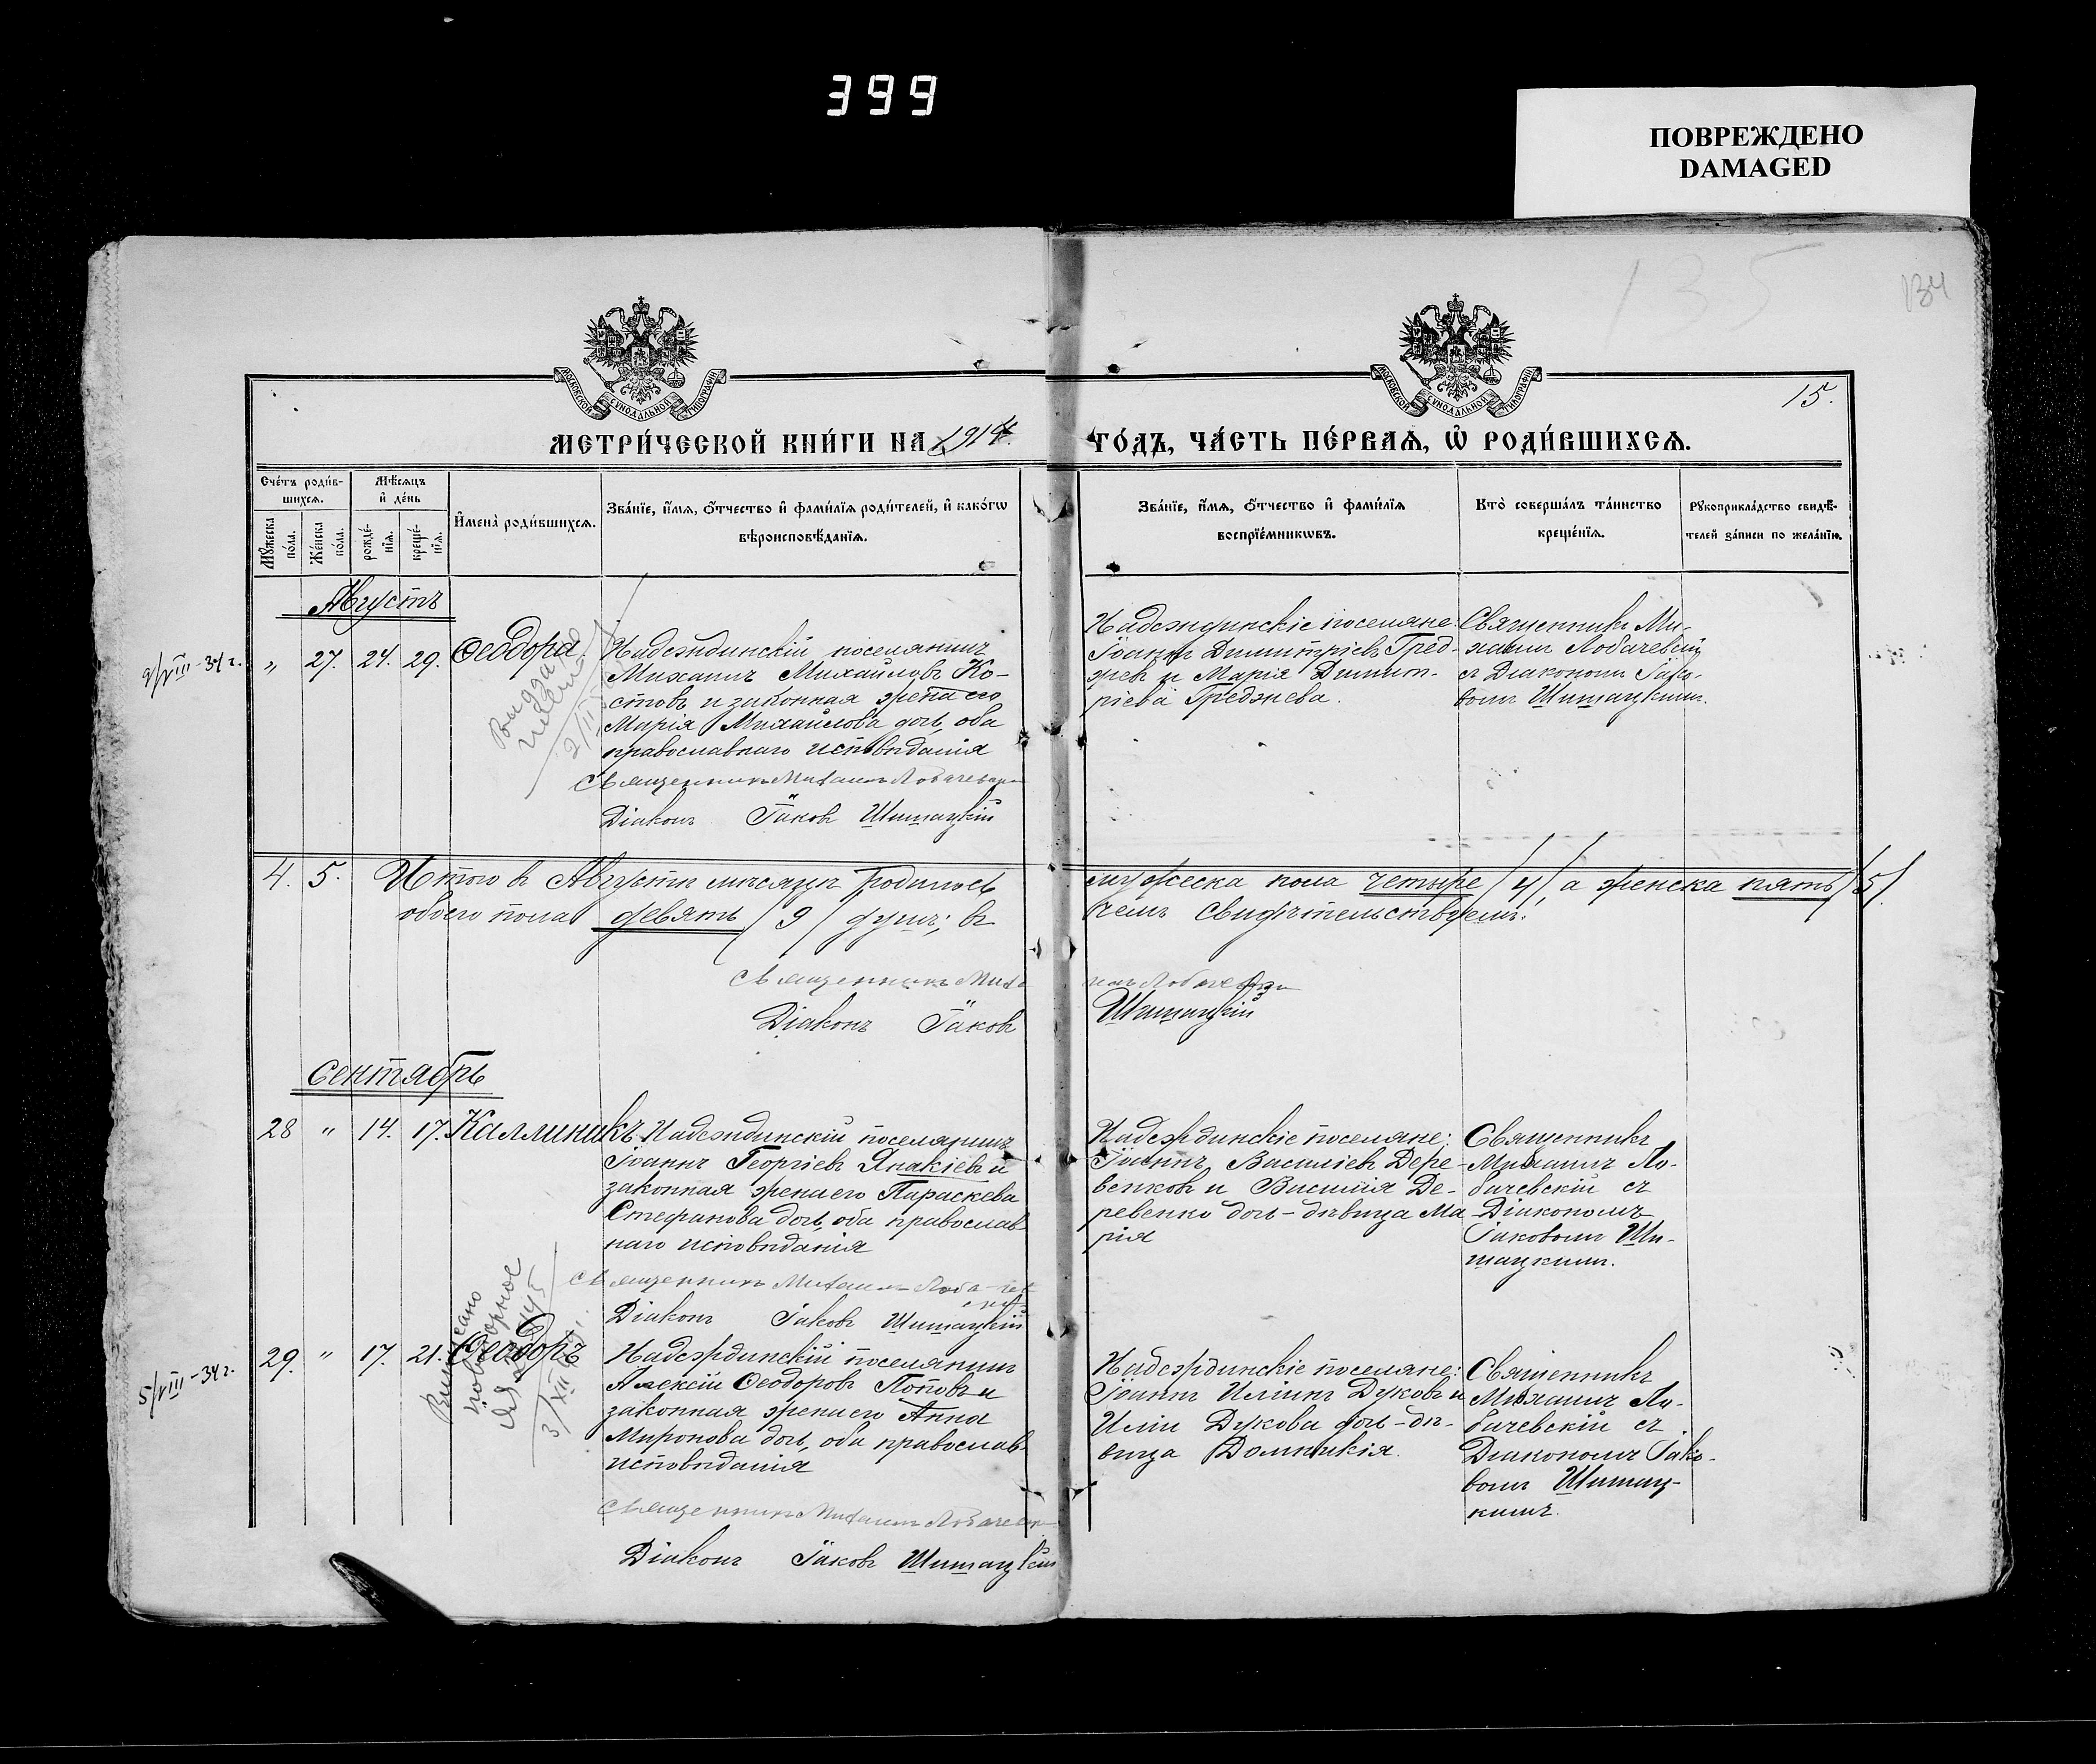 399
ПОВРЕЖДЕНО
DAMAGED
135
134
15.
МОСКОВСКОЙ СѴНОДАЛЬНОЙ ТИПОГРАФІИ
МОСКОВСКОЙ СѴНОДАЛЬНОЙ ТИПОГРАФІИ
МЕТРИ́ЧЕСКОЙ КНИ́ГИ НА 1914
ГО́ДЪ, ЧА́СТЬ ПЕ́РВАѦ, Ѡ҆ РОДИ́ВШИХСѦ.
Сче́тъ роди́в-
шихсѧ.
Мѣ́сѧцъ
и҆ де́нь
Мꙋ́жеска
по́ла.
Же́нска
по́ла.
рожде́-
нїѧ.
креще́-
нїѧ.
И҆мена̀ роди́вшихсѧ.
Зва́нїе, и҆́мѧ, ѻ҆́тчество и҆ фами́лїѧ роди́телей, и҆ како́гѡ
вѣроисповѣ́данїѧ.
Зва́нїе, и҆́мѧ, ѻ҆́тчество и҆ фами́лїѧ
воспрїе́мникѡвъ.
Кто̀ соверша́лъ та́инство
креще́нїѧ.
Рꙋкоприкла́дство свидѣ́-
телей за́писи по жела́нїю.
Августъ
9/VIII-34 г.
„ 27. 24. 29. Ѳеодора.
Надеждинскій поселянинъ
Михаилъ Михайловъ Ко-
стовъ и законная жена его
Марія Михайлова доч., оба
православнаго исповѣданія
Священникъ Михаилъ Лобачевскій
Діаконъ Іаковъ Шишацкій
Надеждинскіе поселяне:
Іоаннъ Димитріевъ Гред-
жев и Марія Димит-
ріева Греджева.
Священникъ Ми-
хаилъ Лобачевскій
съ Діакономъ Іако-
вомъ Шишацкимъ.
4. 5. Итого въ Августѣ мѣсяцѣ родилось
мужеска пола четыре /4/, а женска пять /5/.
обоего пола девять /9/ душъ; въ
чемъ свидѣтельствуемъ.
Священникъ Миха
илъ Лобачевскій
Діаконъ Іаковъ
Шишацкій
Сентябрь
28 „ 14. 17. Каллиникъ.
Надеждинскій поселянинъ
Іоаннъ Георгіевъ Янакіевъ и
законная жена его Параскева
Стефанова доч., оба православ
наго исповѣданія
Священникъ Михаилъ Лобачев
скій
Діаконъ Іаковъ Шишацкій
Надеждинскіе поселяне:
Іоаннъ Василіевъ Дере-
венковъ и Василія Де-
ревенко доч-дѣвица Ма
рія
Священникъ
Михаилъ Ло-
бачевскій съ
Діакономъ
Іаковомъ Ши-
шацкимъ.
5/VIII-34 г.
Выписано
повторное
3/XII
29. „ 17. 21. Ѳеодоръ
Надеждинскій поселянинъ
Алексій Ѳеодоровъ Поповъ и
законная жена его Анна
Миронова доч., оба православ.
исповѣданія
Священникъ Михаилъ Лобачевскій
Діаконъ Іаковъ Шишацкій
Надеждинскіе поселяне:
Іоаннъ Иліинъ Дуковъ и
Иліи Дукова доч-дѣ-
вица Домникія.
Священникъ
Михаилъ Ло-
бачевскій съ
Діакономъ Іако-
вомъ Шишац-
кимъ.